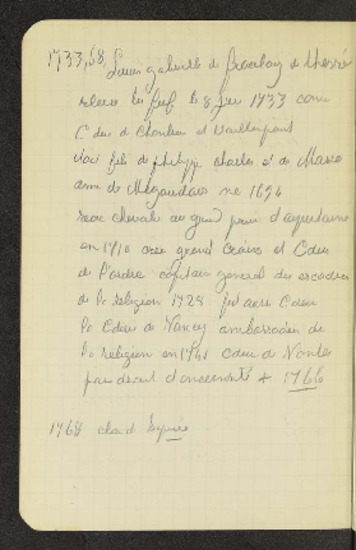 1733,58, Louis gabriell de Froulay de thessé
releve les fief le 8 fev 1733 com
C deu de Chonlieu et Vaillampont
fils de philippe charles et de Marie
anne de Megaudais né 1694
recu chevalie au grand prieu d'aquitaine
en 1710 grand Croix et Cdeu
de l'ordre capitain general des escadres
de la religion 1728 Cdeu
la Cdeu de Nancy ambassadeu de
la religion en 1741 Cdeu de Nantes
par droit d'ancienneté + 1766
1768